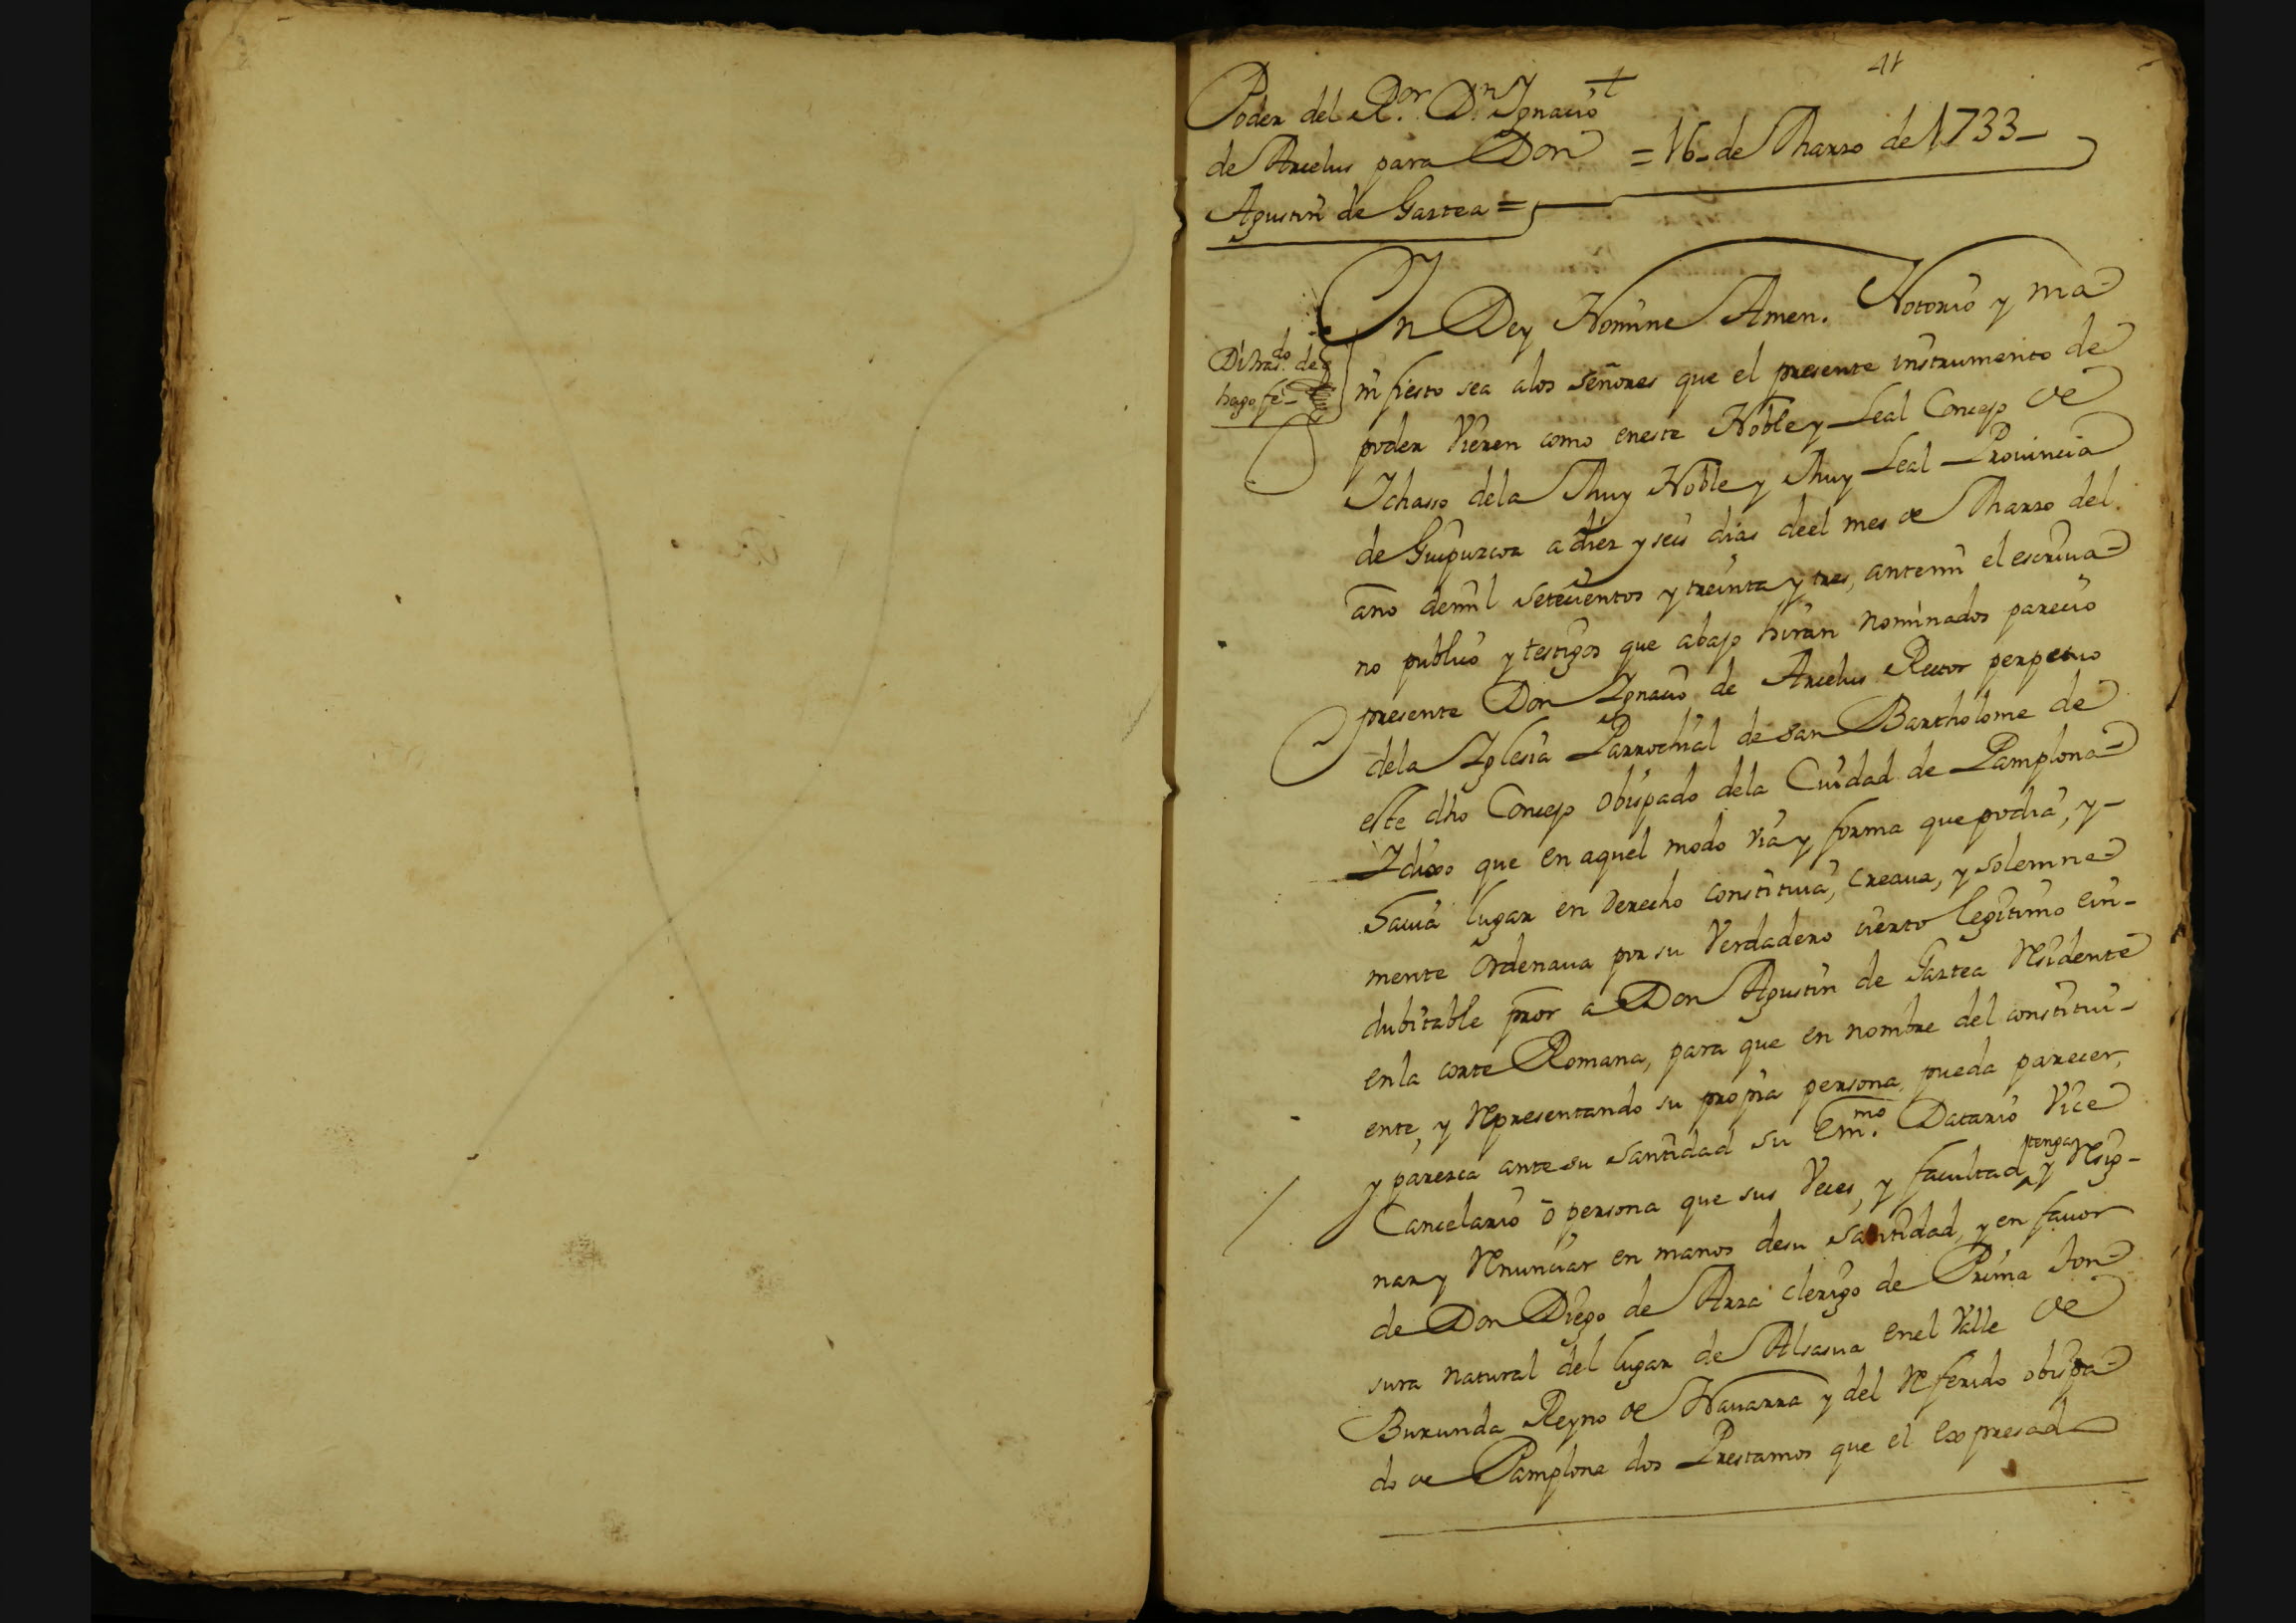 41
Poder del R.or D.n Ignacio
de Arcelus para Don = 16 de Marzo de 1733
Agustin de Gaztea =
In Dey Nomine Amen. Notorio y ma=
nifiesto sea a los señores que el presente instrumento de
poder vieren como eneste Noble y Leal Concejo de
Ichasso dela Muy Noble y Muy Leal Prouincia
de Guipuzcoa a diez y seis dias deel mes de Marzo del
año demil setecientos y treinta y tres, antemi el escriua=
no publico y testigos que abajo hiran nominados parecio
presente Don Ignacio de Arcelus Rector perpetuo
dela Iglesia Parrochial de san Bartholome de
este dho Concejo obispado dela Ciudad de Pamplona=
I dixo que en aquel modo via y forma que podia, y-
hauia lugar en derecho constituia, creaua, y solemne=
mente ordenaua por su Verdadero cierto legitimo ein-
dubitable pror a Don Agustin de Gaztea Residente
enla corte Romana, para que en nombre del constitui-
ente, y Representando su propia persona, pueda parecer,
y paresca ante su santidad su Em.mo Datario Vice
Cancelario o persona que sus Veces, y facultad tenga y Resig-
nar y Renunciar en manos desu santidad, y en fauor
de Don Diego de Arza clerigo de Prima ton=
sura natural del lugar de Alsasua enel Valle de
Burunda Reyno de Nauarra y del Referido obispa=
do de Pamplona dos Prestamos que el expresado
hago fe-